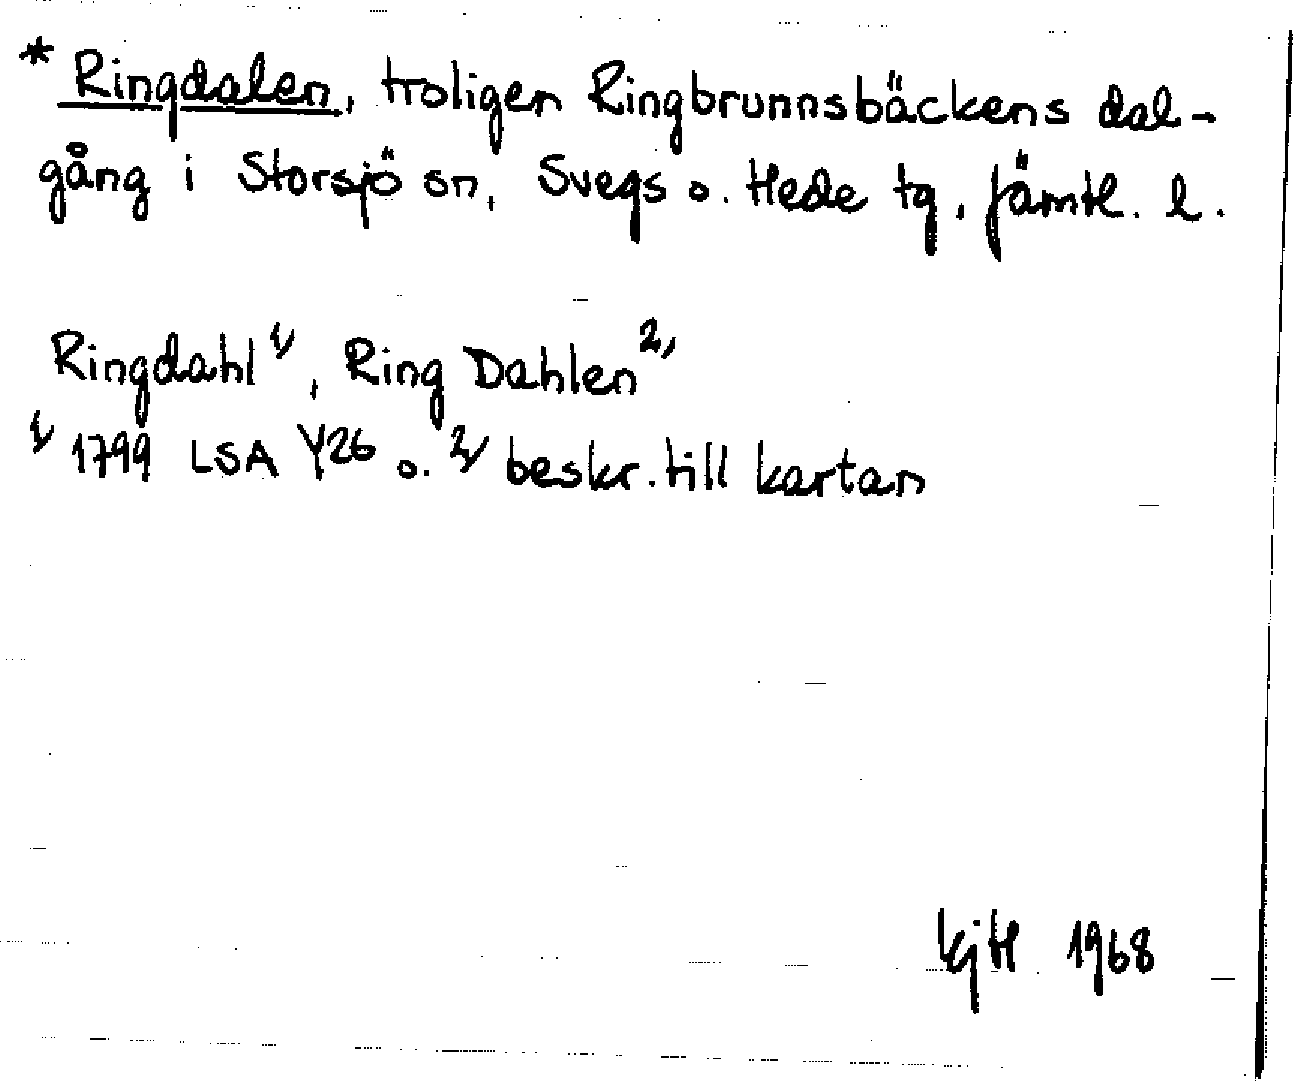 * Ringdalen, troligen Ringbrunnsbäckens dal-
gång i Storsjö sn, Svegs o. Hede tg, Jämtl. l.
Ringdahl 1), Ring Dahlen 2)
1) 1799 LSA Y26 o. 2) beskr. till kartan
kjH 1968